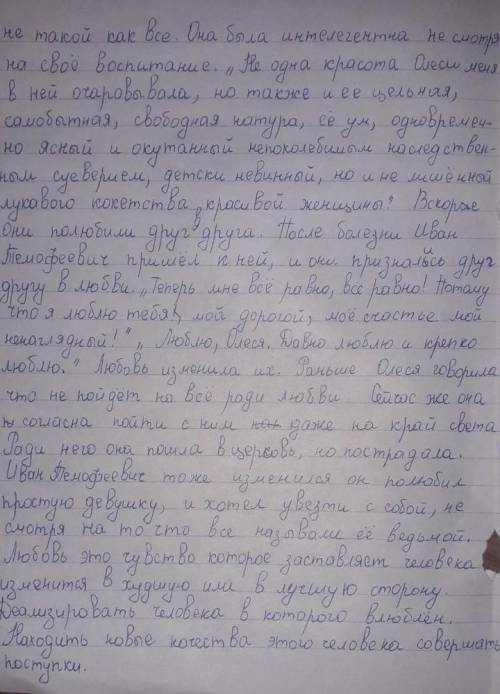 не такой как все. Она была интелегентна не смотря
на своё воспитание. „Не одна красота Олеси меня
в ней очаровывала, но также и ее цельная,
самобытная, свободная натура, её ум, одновремен-
но ясный и окутанный непоколебимым наследствен-
ным суеверием, детски невинный, но и не лишённый
лукавого кокетства красивой женщины." Вскоре
они полюбили друг в друга. После болезни Иван
Темофеевич пришёл к ней, и они признались друг
другу в любви. „Теперь мне всё равно, всё равно! Потому
что я люблю тебя!, мой дорогой, моё счастье мой
ненаглядный!" „Люблю, Олеся. Давно люблю и крепко
люблю." Любовь изменила их. Раньше Олеся говорила
что не пойдёт на всё ради любви. Сейчас же она
согласна пойти с ним даже на край света
Ради него она пошла в церковь, но пострадала.
Иван Темофеевич тоже изменился он полюбил
простую девушку, и хотел увезти с собой, не
смотря на то что все называли её ведьмой.
Любовь это чувство которое заставляет человека
изменится в худшую или в лучшую сторону.
Деализировать человека в которого влюблён.
Находить новые качества этого человека совершать
поступки.